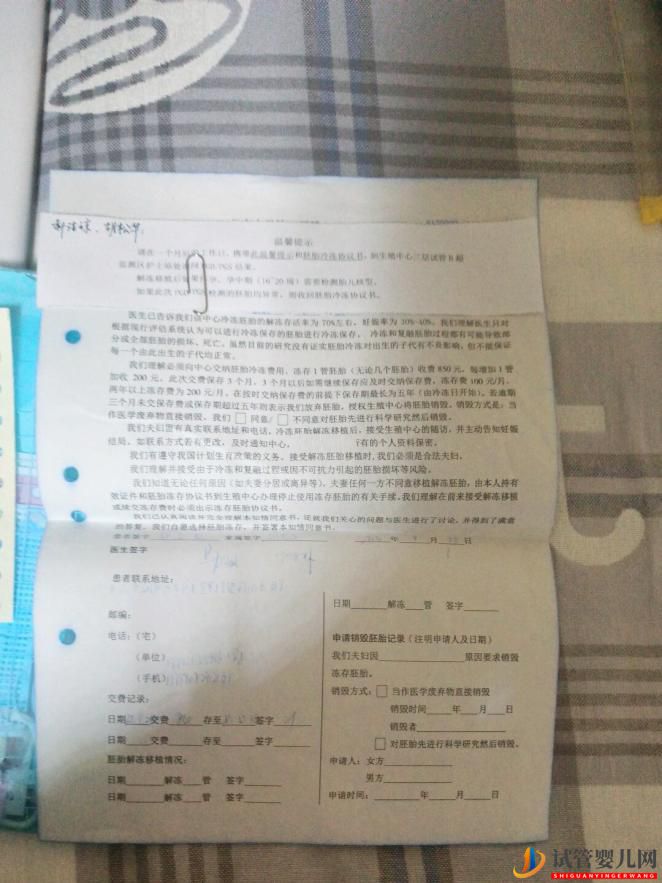 温馨提示
请在一个月后的工作日,携带此温馨提示和胚胎冷冻协议书,到生殖中心三层试管B超
监测区护士站处询问PGD/PGS结果。
解冻移植后如果怀孕,孕中期(16~20周)需要检测胎儿核型。
如果此次PGD/PGS检测的胚胎均异常,则收回胚胎冷冻协议书。
医生已告诉我们该中心冷冻胚胎的解冻存活率为70%左右,妊娠率为30%-40%。我们理解医生只对
根据现行评估系统认为可以进行冷冻保存的胚胎进行冷冻保存,冷冻和复融胚胎过程都有可能导致部
分或全部胚胎的损坏、死亡。虽然目前的研究没有证实胚胎冷冻对出生的子代有不良影响,但不能保证
每一个由此出生的子代均正常。
我们理解必须向中心交纳胚胎冷冻费用,冻存1管胚胎(无论几个胚胎)收费850元,每增加1管
加收200元。此次交费保存3个月,3个月以后如需继续保存应及时交纳保存费,冻存费100元/月,
两年以上冻存费为200元/月。在按时交纳保存费的前提下保存期最长为五年(由冷冻日开始)。若逾期
三个月未交保存费或保存期超过五年则表示我们放弃胚胎,授权生殖中心将胚胎销毁。销毁方式是:当
作医学废弃物直接销毁。我们□同意/□不同意对胚胎先进行科学研究然后销毁。
我们夫妇留有真实联系地址和电话,冷冻胚胎解冻移植后,接受生殖中心的随访,并主动告知妊娠
结局。如联系方式若有更改,及时通知中心。 有的个人资料保密。
我们有遵守我国计划生育政策的义务。接受解冻胚胎移植时,我们必须是合法夫妇。
我们理解并接受由于冷冻和复融过程或因不可抗力引起的胚胎损坏等风险。
我们知道无论任何原因(如夫妻分居或离异等),夫妻任何一方不同意移植解冻胚胎,由本人持有
效证件和胚胎冻存协议书到生殖中心办理停止使用冻存胚胎的有关手续。我们理解在前来接受解冻移植
或续交冻存费时必须出示冻存胚胎协议书。
我们已认真阅读并完全理解本知情同意书,还就我们关心的问题与医生进行了讨论,并得到了满意
的答复。我们自愿选择胚胎冻存,并签署本知情同意书。
年 月 日
医生签字
患者联系地址:
邮编:
电话:(宅)
(单位)
(手机)
交费记录:
日期 交费 存至 签字
日期 交费 存至 签字
胚胎解冻移植情况:
日期 解冻 管 签字
日期 解冻 管 签字
日期 解冻 管 签字
申请销毁胚胎记录(注明申请人及日期)
我们夫妇因 原因要求销毁
冻存胚胎。
销毁方式:□当作医学废弃物直接销毁
销毁时间 年 月 日
销毁者
□对胚胎先进行科学研究然后销毁。
申请人:女方
男方
申请时间: 年 月 日
试管婴儿网
SHIGUANYINGERWANG